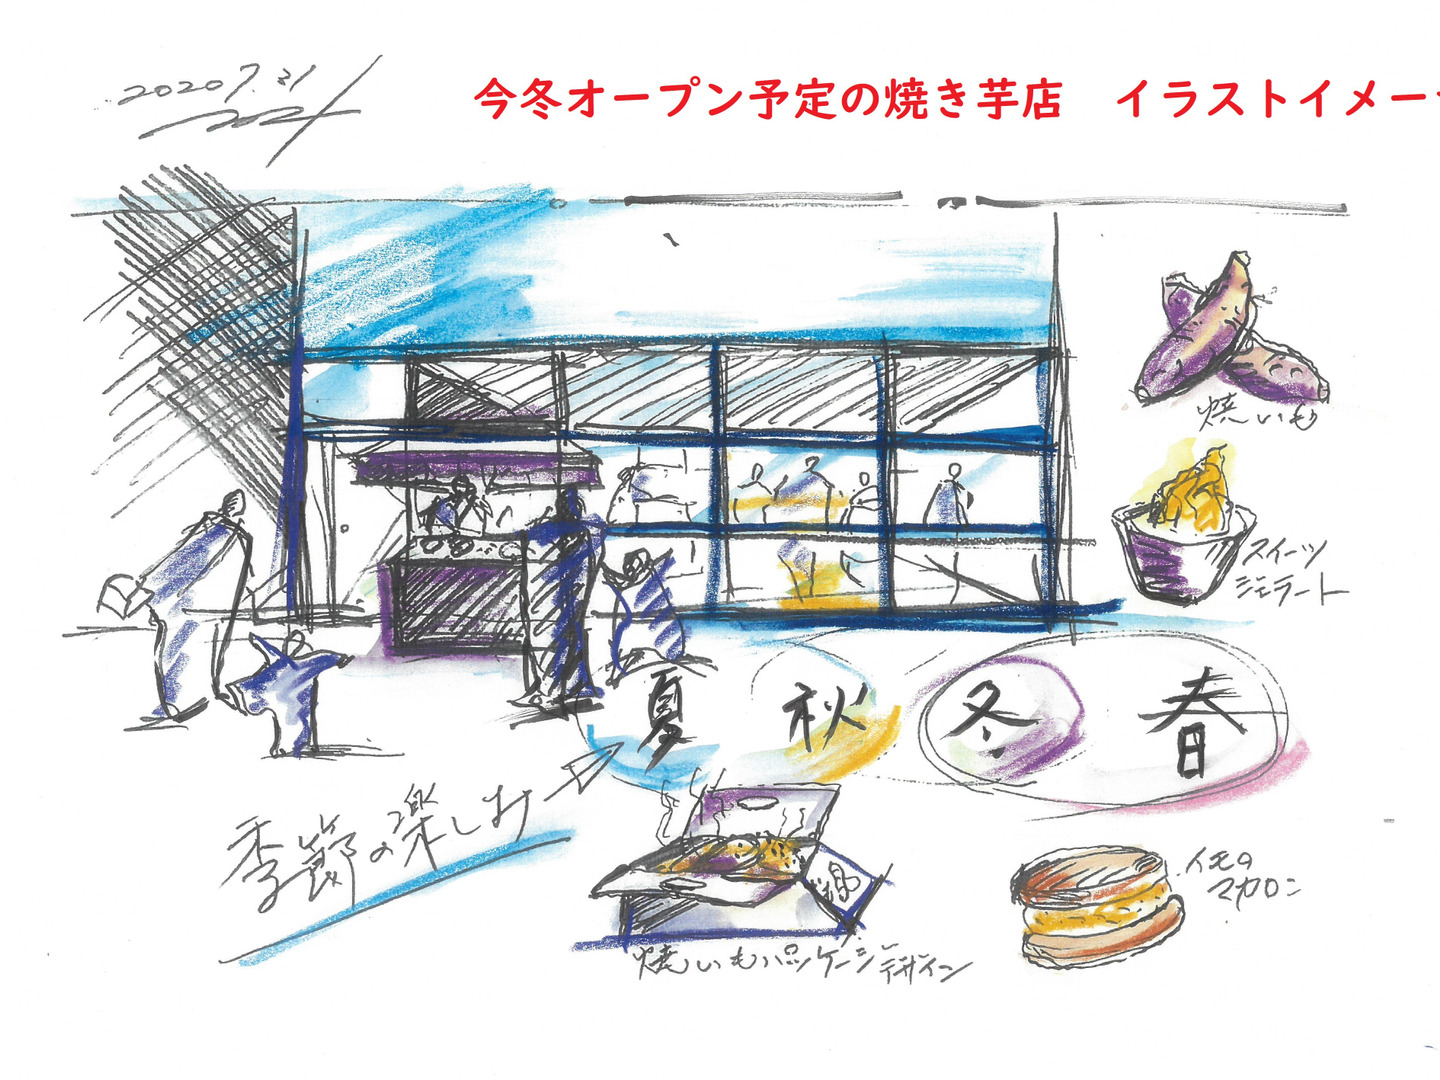 2020 7.31
今冬オープン予定の焼き芋店　イラストイメー
焼いも
スイーツ
ジェラート
夏 秋 冬 春
季節の楽しみ
イモの
マカロン
焼いもパッケージデザイン